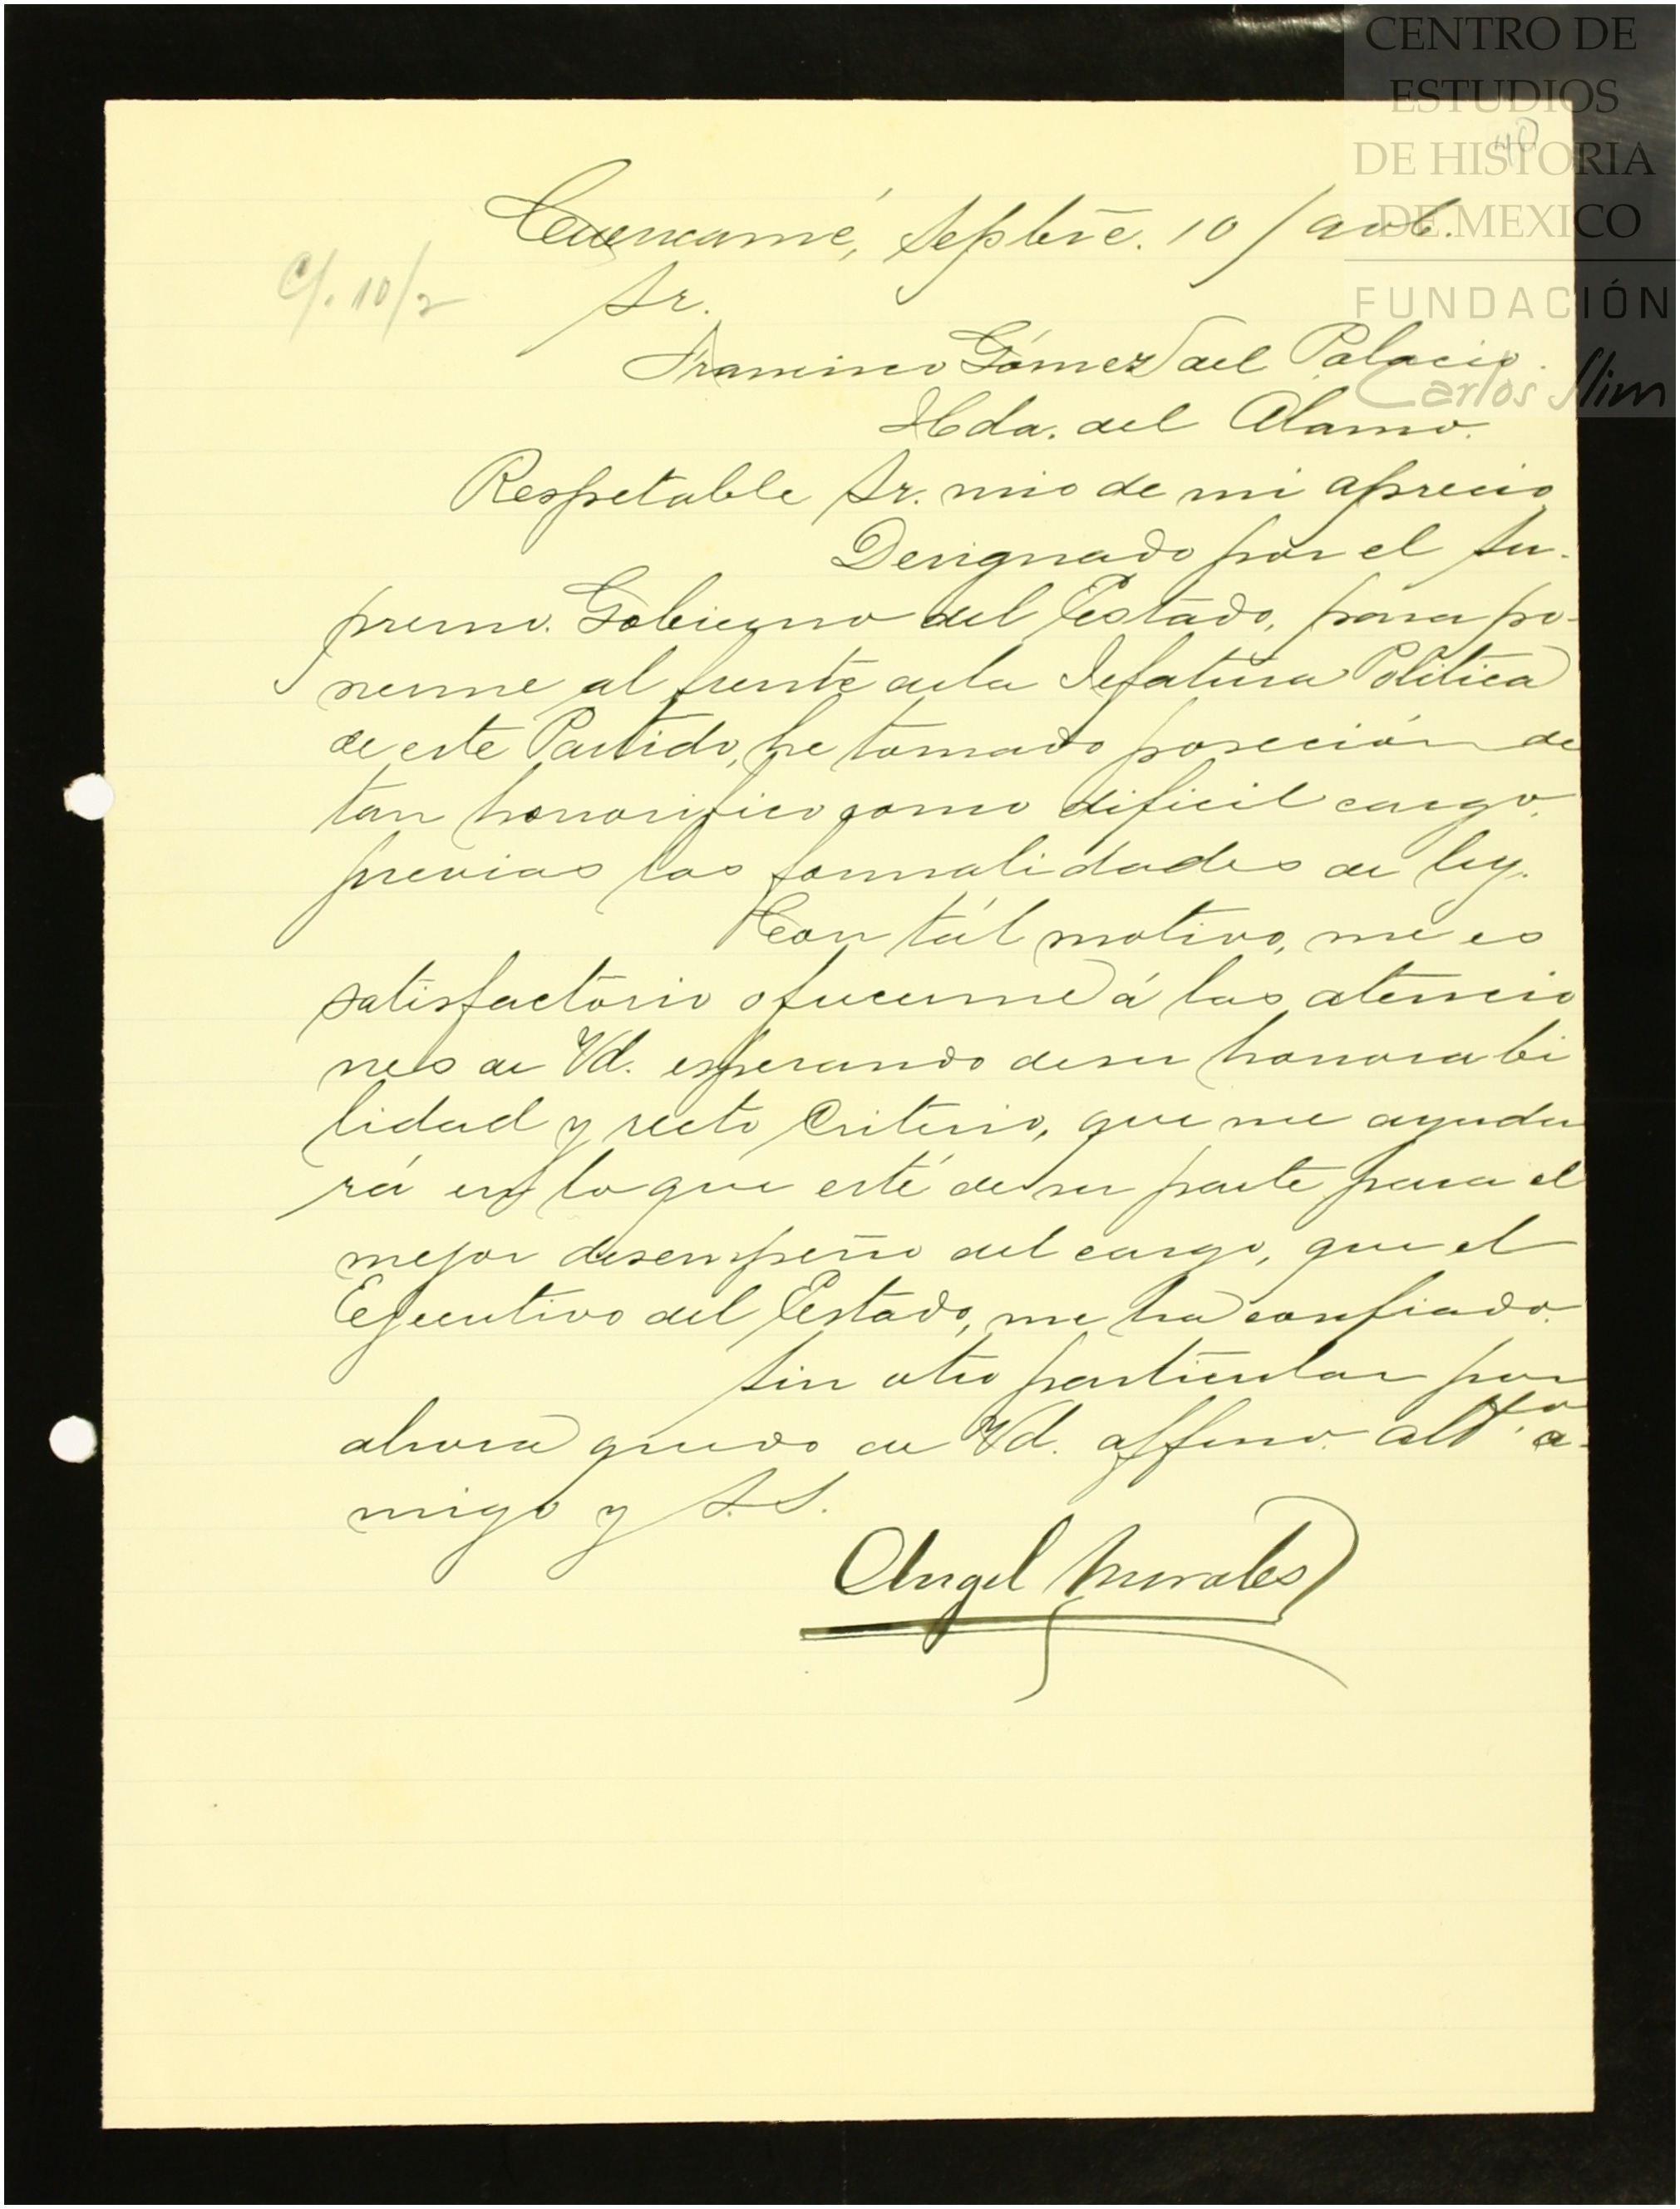 CENTRO DE
ESTUDIOS
DE HISTORIA
DE MEXICO
FUNDACIÓN
Carlos Slim
40
Cuencamé, Septbre. 10/906.
C/. 10/2
Sr.
Francisco Gómez del Palacio.
Hda. del Alamo.
Respetable Sr. mio de mi aprecio
Designado por el Su-
premo. Gobierno del Estado, para po-
nerme al frente de la Jefatura Politica
de este Partido, he tomado poseción de
tan honorifico como dificil cargo,
previas las formalidades de ley.
Con tál motivo, me es
satisfactorio ofrecerme á las atencio
nes de Vd. esperando de su honorabi
lidad y recto criterio, que me ayuda
rá en lo que esté de su parte para el
mejor desempeño del cargo, que el
Ejecutivo del Estado, me ha confiado.
Sin otro particular por
ahora quedo de Vd. affmo. attº. a-
migo y S.S.
Angel Morales